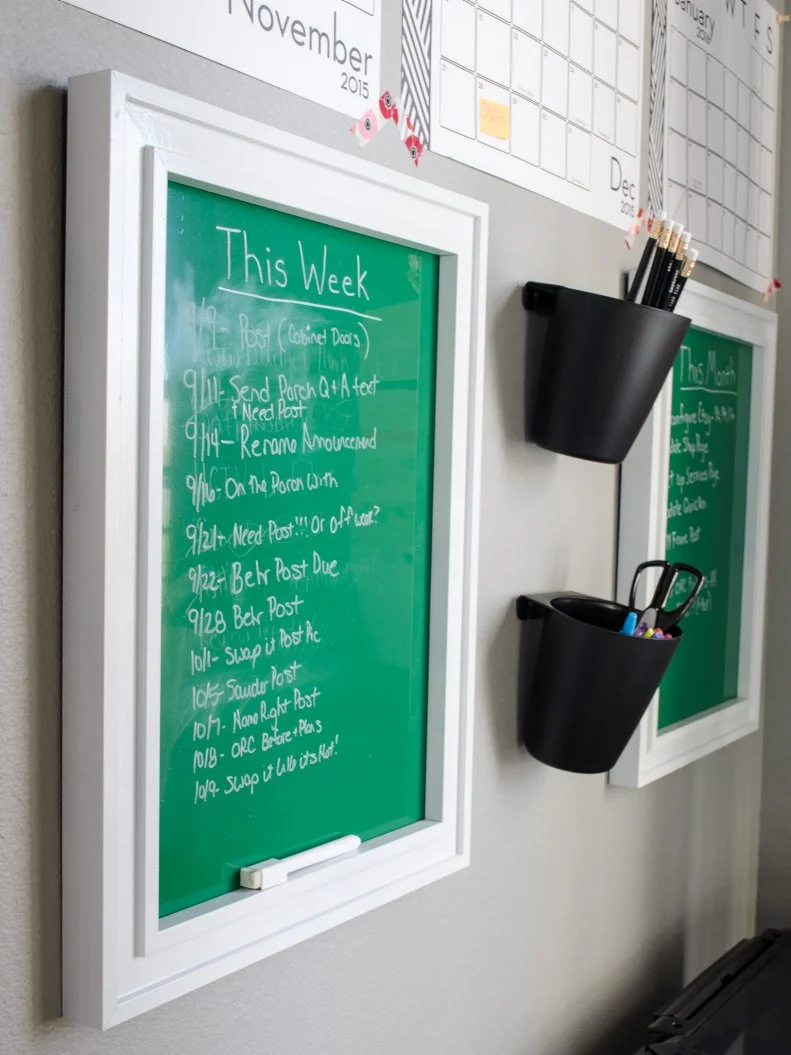 November
2015
Dec
2015
January
2016
W T F S
This Week
9/9- Post (Cabinet Doors)
9/11- Send Porch Q+A text
+ Need Post
9/14- Rename Announcement
9/16- On the Porch With
9/21- Need Post!!! Or off week?
9/22- Behr Post Due
9/28 Behr Post
10/1- Swap it Post Pic
10/5- Sauder Post
10/7- Name Right Post
10/8- ORC Before + Plans
10/9- Swap it
This Month
Shop Page
up Services Page
Frame Post